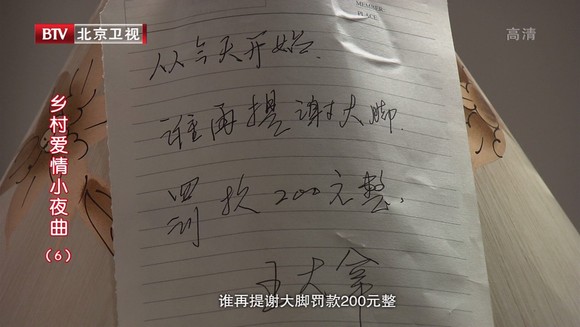 BTV 北京卫视
高清
MEMBER
PLACE
从今天开始.
谁再提谢大脚.
罚款200元整.
王大拿
乡村爱情小夜曲
(6)
谁再提谢大脚罚款200元整